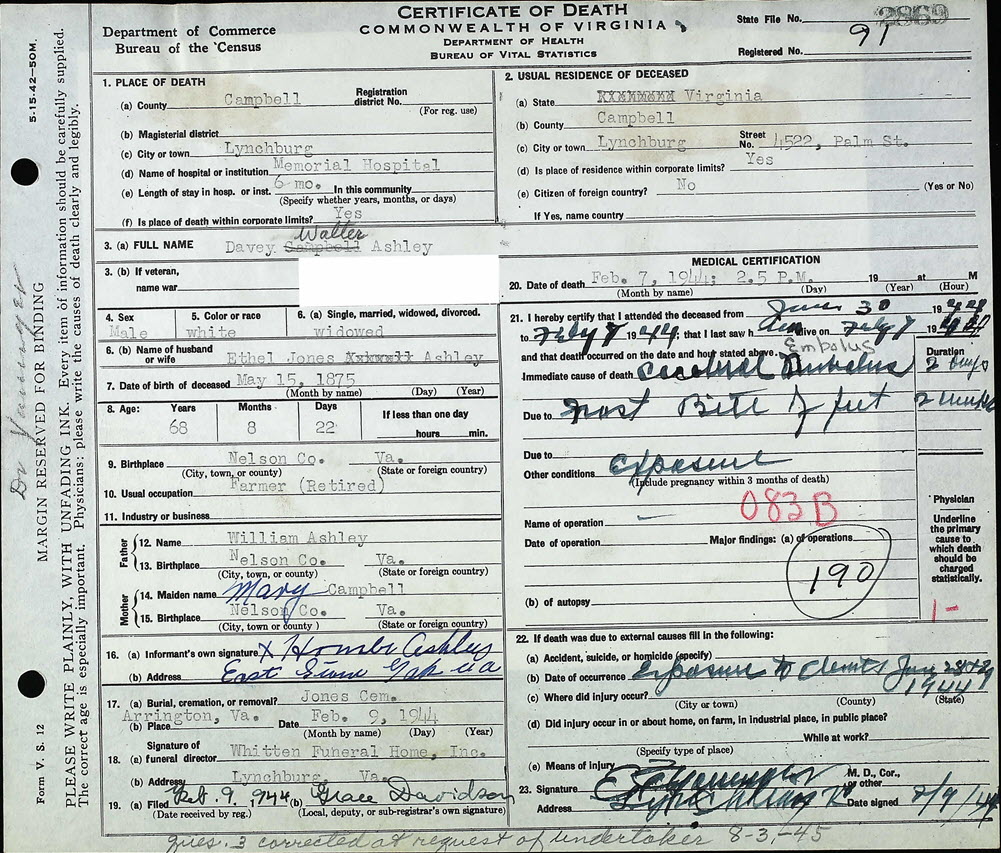 CERTIFICATE OF DEATH
COMMONWEALTH OF VIRGINIA
DEPARTMENT OF HEALTH
BUREAU OF VITAL STATISTICS
Department of Commerce
Bureau of the Census
State File No. 2869
Registered No. 91
5-15-42-50M.
Form V. S. 12
MARGIN RESERVED FOR BINDING
PLEASE WRITE PLAINLY, WITH UNFADING INK. Every item of information should be carefully supplied.
The correct age is especially important. Physicians: please write the causes of death clearly and legibly.
1. PLACE OF DEATH
(a) County Campbell Registration district No. (For reg. use)
(b) Magisterial district
(c) City or town Lynchburg
(d) Name of hospital or institution Memorial Hospital
(e) Length of stay in hosp. or inst. 6 mo. In this community
(Specify whether years, months, or days)
(f) Is place of death within corporate limits? Yes
2. USUAL RESIDENCE OF DECEASED
(a) State Virginia
(b) County Campbell
(c) City or town Lynchburg Street No. 4522, Palm St.
(d) Is place of residence within corporate limits? Yes
(e) Citizen of foreign country? No (Yes or No)
If Yes, name country
3. (a) FULL NAME Davey Campbell Walter Ashley
3. (b) If veteran, name war
4. Sex Male
5. Color or race white
6. (a) Single, married, widowed, divorced. widowed
6. (b) Name of husband or wife Ethel Jones Ashley
7. Date of birth of deceased May 15, 1875
(Month by name) (Day) (Year)
8. Age: Years 68 Months 8 Days 22 If less than one day hours min.
9. Birthplace Nelson Co. Va.
(City, town, or county) (State or foreign country)
10. Usual occupation Farmer (Retired)
11. Industry or business
Father
12. Name William Ashley
13. Birthplace Nelson Co. Va.
(City, town, or county) (State or foreign country)
Mother
14. Maiden name Mary Campbell
15. Birthplace Nelson Co. Va.
(City, town, or county) (State or foreign country)
16. (a) Informant's own signature X Ashley
(b) Address East Gap
17. (a) Burial, cremation, or removal? Jones Cem.
Arrington, Va.
(b) Place Date Feb. 9, 1944
(Month by name) (Day) (Year)
18. Signature of (a) funeral director Whitten Funeral Home, Inc.
(b) Address Lynchburg, Va.
19. (a) Filed Feb. 9, 1944 (b) Grace Davidson
(Date received by reg.) (Local, deputy, or sub-registrar's own signature)
MEDICAL CERTIFICATION
20. Date of death Feb. 7, 1944; 2.5 P.M. 19 at M
(Month by name) (Day) (Year) (Hour)
21. I hereby certify that I attended the deceased from June 30 19
to Feby 7 1944; that I last saw h alive on Feby 7 19
and that death occurred on the date and hour stated above. Embolus
Duration
Immediate cause of death cerebral Embolus 2 days
Due to Frost Bite of feet
Due to
Other conditions exposure
(Include pregnancy within 3 months of death)
083B
Name of operation
Date of operation Major findings: (a) of operations
190
(b) of autopsy
Physician
Underline the primary cause to which death should be charged statistically.
1-
22. If death was due to external causes fill in the following:
(a) Accident, suicide, or homicide (specify)
(b) Date of occurrence Exposure to Jan 1944
(c) Where did injury occur?
(City or town) (County) (State)
(d) Did injury occur in or about home, on farm, in industrial place, in public place?
While at work?
(Specify type of place)
(e) Means of injury
23. Signature M. D., Cor., or other
Address Date signed 2/9/44
ques. 3 corrected at request of undertaker 8-3-45